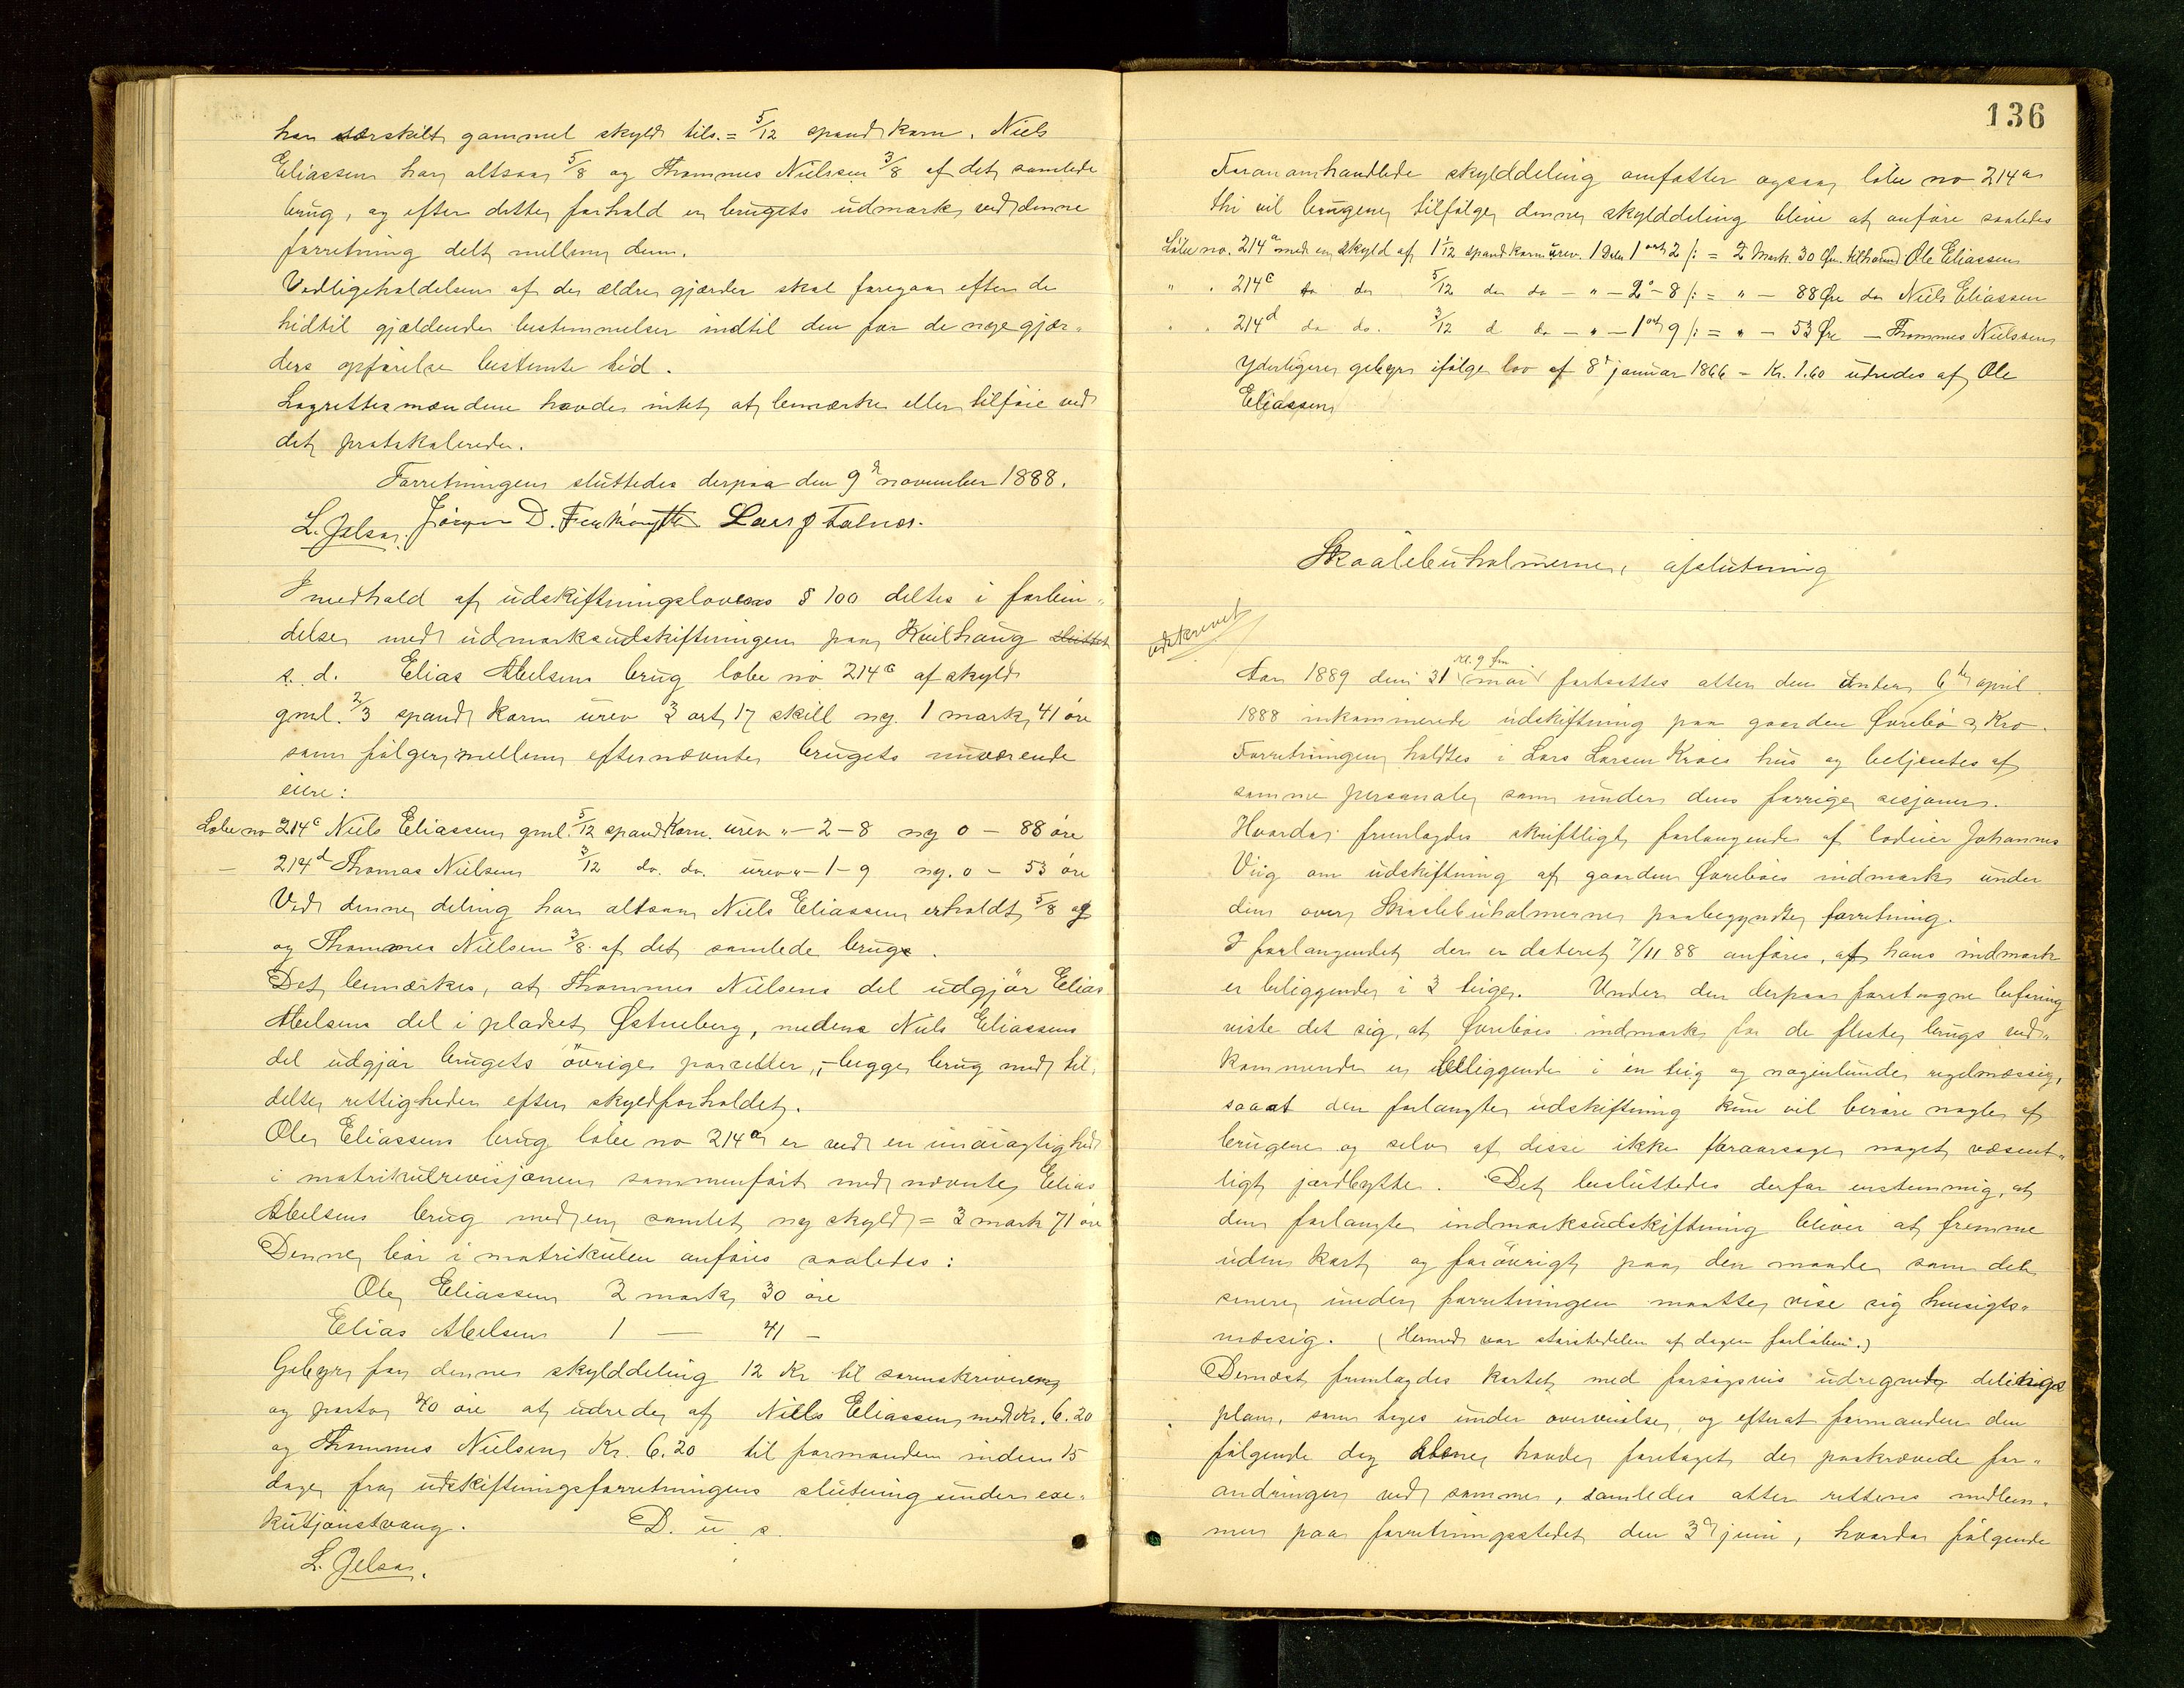 har særskilt gammel skyld tils. = 5/12 spand korn. Niels
Eliassen har altsaa 5/8 og Thommes Nielsen 3/8 af det samlede
brug, og efter dette forhold er brugets udmark ved denne
forretning delt mellem dem.
Vedligeholdelsen af de ældre gjærder skal foregaa efter de
hidtil gjældende bestemmelser indtil den for de nye gjær-
ders opførelse bestemte tid.
Lagrettesmændene havde intet at bemærke eller tilføie ved
det protokolerede.
Forretningen sluttedes derpaa den 9de november 1888.
L. Jelsa. Jörgen D. Lars J Talnes.
I medhold af udskiftningslovens § 100 deltes i forbin-
delse med udmarksudskiftningen paa Kvilhaug
s. d. Elias Abelsens brug løbe no 214c af skyld
gml. 2/3 spand korn urev 3 ort 17 skill ny. 1 mark 41 øre
som følger mellem efternævnte brugets nuværende
eiere:
Løbe no 214c Niels Eliassen gml. 5/12 spand korn. urev " - 2 - 8 ny 0 - 88 øre
— 214d Thomas Nielsen 3/12 do. do. urev " - 1 - 9 ny. 0 - 53 øre
Ved denne deling har altsaa Niels Eliassen erholdt 5/8 og
og Thommes Nielsen 3/8 af det samlede brug.
Det bemærkes, at Thommes Nielsens del udgjør Elias
Abelsens del i pladset Østreberg, medens Niels Eliassens
del udgjør brugets øvrige parceller, - begge brug med til-
delte rettigheder efter skyldforholdet.
Ole Eliassens brug løbe no 214a er ved en unøiagtighed
i matrikulrevisjonen sammenført med nævnte Elias
Abelsens brug med en samlet ny skyld = 3 mark 71 øre
Denne bør i matrikulen anføres saaledes:
Ole Eliassen 2 mark 30 øre
Elias Abelsen 1 — 41 —
Gebyr for denne skylddeling 12 Kr til sorenskriveren
og porto 40 øre at udrede af Niels Eliassen med Kr. 6.20
og Thommes Nielsen Kr. 6.20 til formanden inden 15
dage fra udskiftningsforretningens slutning under exe-
kutjonstvang. D. u. s.
L. Jelsa.
136
Foranomhandlede skylddeling omfatter ogsaa løbe no 214a
thi vil brugene tilfølge denne skylddeling blive at anføre saaledes
Løbe no. 214a med en skyld af 1 1/12 spand korn urev. 1 Daler 1 ort 2 /: = 2 Mark 30 Øre tilhørende Ole Eliassen
" " 214c do do 5/12 do do - " - 2 o - 8 /: = " - 88 Øre do Niels Eliassen
" " 214d do do. 3/12 d do - " - 1 ort 9 /: = " - 53 Øre - Thommes Nielssen
Yderligere gebyr ifølge lov af 8de januar 1866 - Kr. 1.60 udredes af Ole
Eliassen
Skaalebuholmerne, afslutning
udskrevet
Kl. 9 fm
Aar 1889 den 31 mai fortsattes atter den under 6te april
1888 inkommerede udskiftning paa gaarden Øvrebø & Kro.
Forretningen holdtes i Lars Larsen Kroes hus og betjentes af
samme personale som under dens forrige sesjoner.
Hvorda fremlagdes skriftligt forlangende af lodeier Johannes
Viig om udskiftning af gaarden Øvrebøes indmark under
den over Skaalebuholmerne paabegyndte forretning.
I forlangendet der er dateret 7/11 88 anføres, at hans indmark
er beliggende i 3 teiger. Under den derpaa foretagne befaring
viste det sig, at Øvrebøes indmark for de fleste brugs ved-
kommende er beliggende i én teig og nogenlunde regelmæssig,
saaat den forlangte udskiftning kun vil berøre nogle af
brugene og selv af disse ikke foraarsage noget væsent-
ligt jordbytte. Det besluttedes derfor enstemmig, at
den forlangte indmarksudskiftning bliver at fremme
uden kart og forøvrigt paa den maade som det
senere under forretningen maatte vise sig hensigts-
mæssig. (Hermed var størstedelen af dagen forløben.)
Dernæst fremlagdes kartet med forsøgsvis udregnede delings
plan, som toges under overveielse, og efterat formanden den
følgende dag alene havde foretaget de paakrævede for-
andringer ved samme, samledes atter rettens medlem-
mer paa forretningsstedet den 3de juni, hvorda følgende